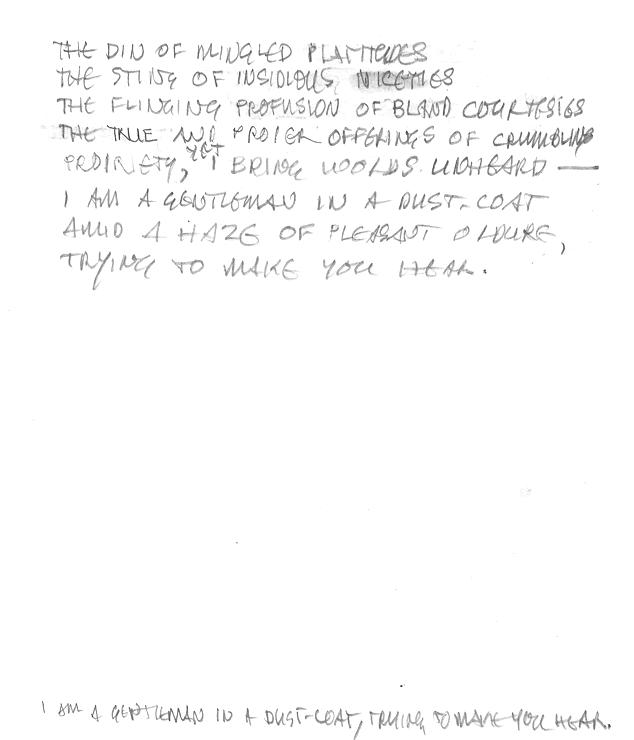 THE DIN OF MINGLED PLATITUDES
THE STING OF INSIDIOUS NICETIES
THE FLINGING PROFUSION OF BLAND COURTESIES
THE TRUE AND PROPER OFFERINGS OF CRUMBLING
PROPRIETY, YET I BRING WORDS UNHEARD —
I AM A GENTLEMAN IN A DUST-COAT
AMID A HAZE OF PLEASANT
TRYING TO MAKE YOU HEAR.
I AM A GENTLEMAN IN A DUST-COAT, TRYING TO MAKE YOU HEAR.